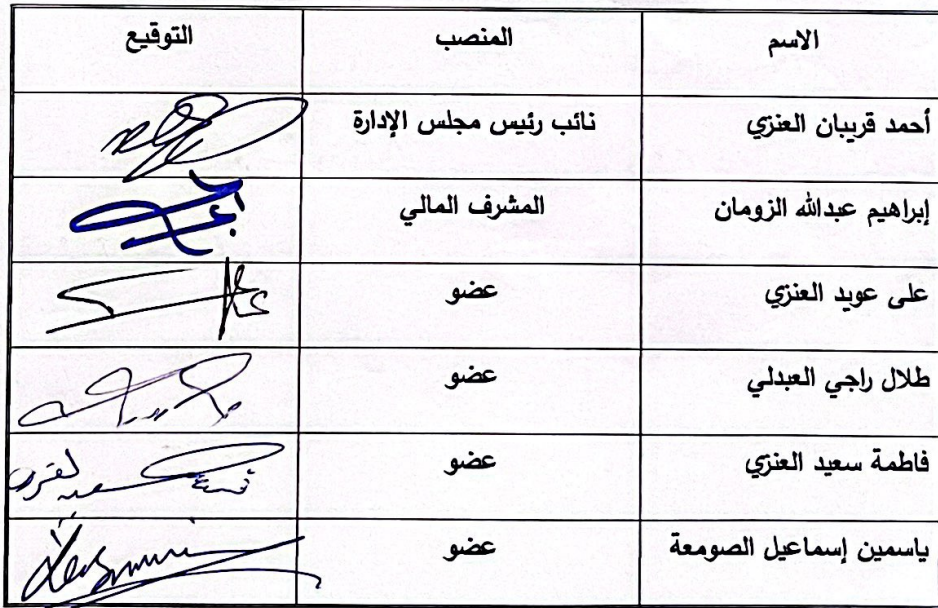 الاسم المنصب التوقيع
أحمد قريبان العنزي نائب رئيس مجلس الإدارة
إبراهيم عبدالله الزومان المشرف المالي
على عويد العنزي عضو
طلال راجي العبدلي عضو
فاطمة سعيد العنزي عضو
ياسمين إسماعيل الصومعة عضو